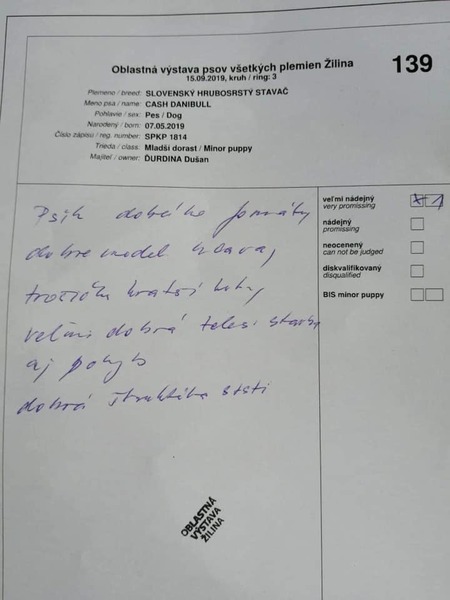 Oblastná výstava psov všetkých plemien Žilina
139
15.09.2019, kruh / ring: 3
Plemeno / breed: SLOVENSKÝ HRUBOSRSTÝ STAVAČ
Meno psa / name: CASH DANIBULL
Pohlavie / sex: Pes / Dog
Narodený / born: 07.05.2019
Číslo zápisu / reg. number: SPKP 1814
Trieda / class: Mladší dorast / Minor puppy
Majiteľ / owner: ĎURDINA Dušan
Psík dobrého formátu
dobre model hlava,
trošičku kratší
veľmi dobrá telesi stavba
aj pohyb
dobrá štruktúra srsti
veľmi nádejný
very promissing
x 1
nádejný
promissing
neocenený
can not be judged
diskvalifikovaný
disqualified
BIS minor puppy
OBLASTNÁ
VÝSTAVA
ŽILINA